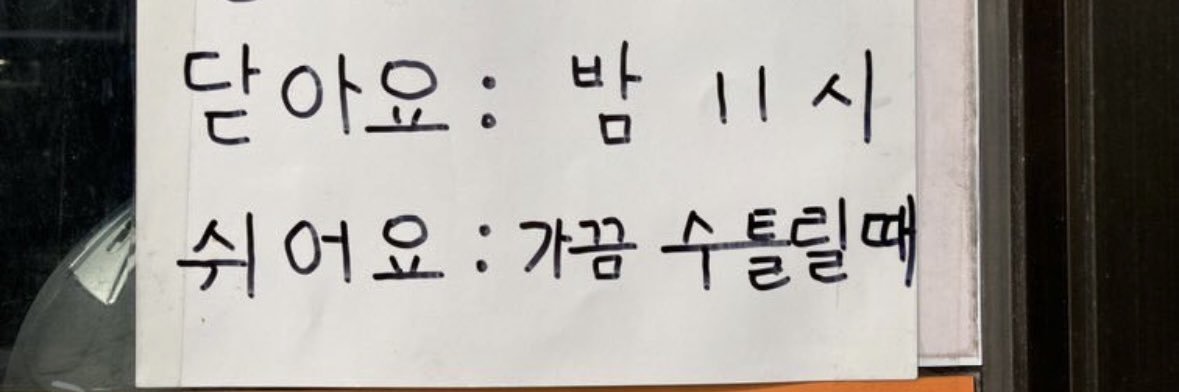 닫아요: 밤 11시
쉬어요: 가끔 수틀릴때